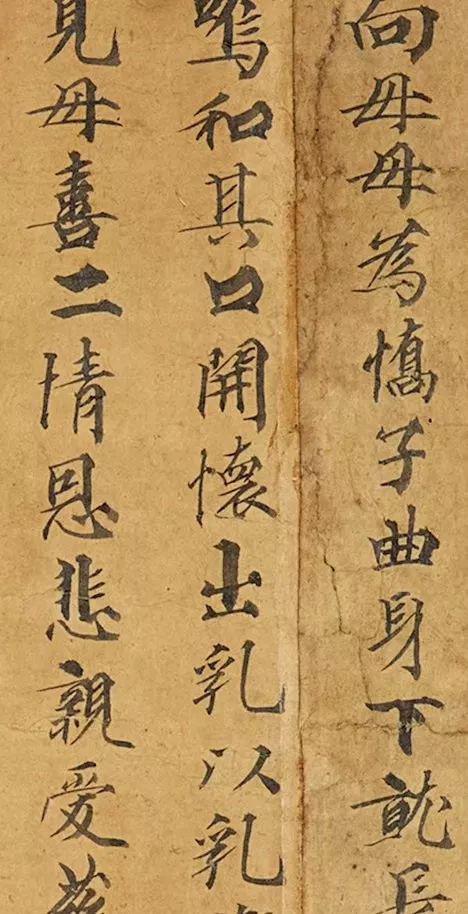 向母母為憍子曲身下就長
嗚和其口開懷出乳以乳
見母喜二情恩悲親愛慈